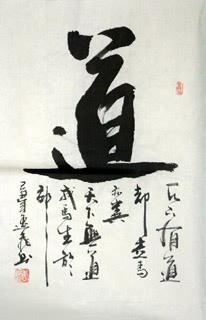 道
天下有道
却走馬
以糞
天下無道
戎馬生於
郊